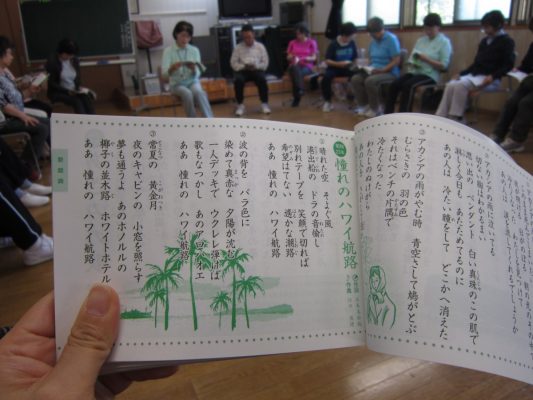 アカシアの雨がやむ時
青空さして鳩がとぶ
むらさきの 羽の色
それはベンチの片隅で
冷たくなった わたしのぬけがら
あの人は 冷たい瞳をして どこかへ消えた
思い出の ペンダント 白い真珠のこの肌で
淋しく今日も あたためてるのに
憧れのハワイ航路
晴れた空 そよぐ風
港出船の ドラの音愉し
別れテープを 笑顔で切れば
希望はてない 遥かな潮路
ああ 憧れの ハワイ航路
②波の背を バラ色に
染めて真赤な 夕陽が沈む
一人デッキで ウクレレ弾けば
歌もなつかし あのアロハオエ
ああ 憧れの ハワイ航路
③常夏の 黄金月
夜のキャビンの 小窓を照らす
夢も通うよ あのホノルルの
椰子の並木路 ホワイトホテル
ああ 憧れの ハワイ航路
歌謡曲